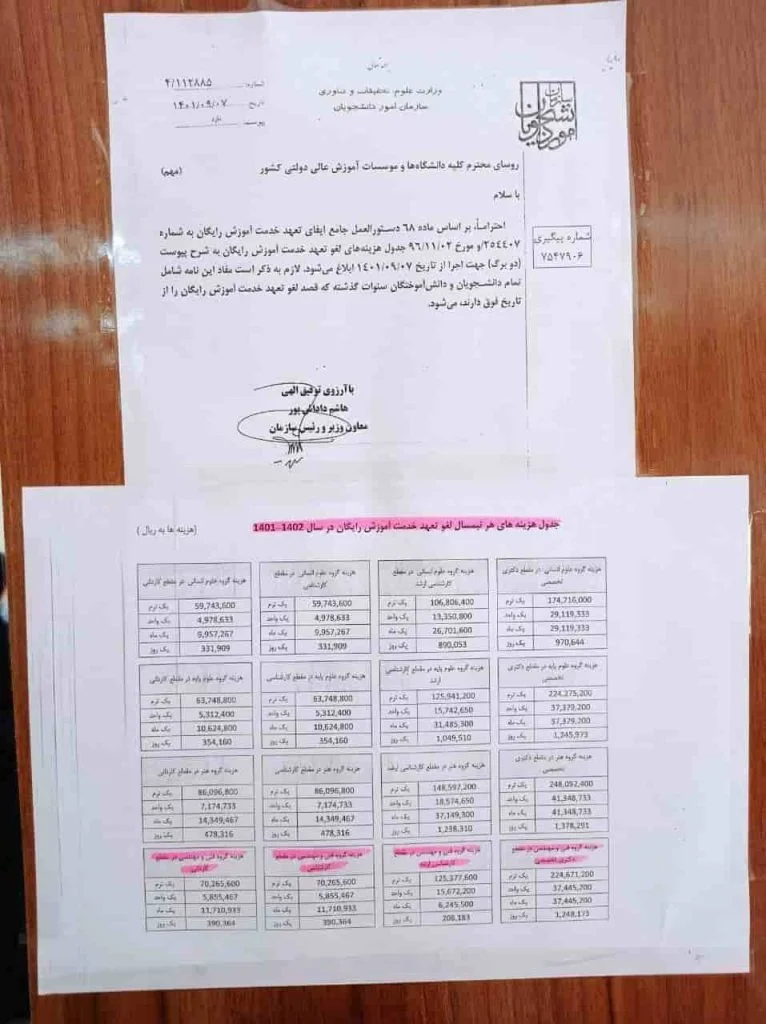 بسمه تعالی
سازمان امور دانشجویان
وزارت علوم، تحقیقات و فناوری
سازمان امور دانشجویان
شماره: ۴/۱۱۲۸۸۵
تاریخ: ۱۴۰۱/۰۹/۰۷
پیوست: دارد
روسای محترم کلیه دانشگاه‌ها و موسسات آموزش عالی دولتی کشور (مهم)
با سلام
احتراماً، بر اساس ماده ۶۸ دستورالعمل جامع ایفای تعهد خدمت آموزش رایگان به شماره
۲۵۴۴۰۷/و مورخ ۹۶/۱۱/۰۲ جدول هزینه‌های لغو تعهد خدمت آموزش رایگان به شرح پیوست
(دو برگ) جهت اجرا از تاریخ ۱۴۰۱/۰۹/۰۷ ابلاغ می‌شود. لازم به ذکر است مفاد این نامه شامل
تمام دانشجویان و دانش‌آموختگان سنوات گذشته که قصد لغو تعهد خدمت آموزش رایگان را از
تاریخ فوق دارند، می‌شود.
شماره پیگیری
۷۵۴۷۹۰۶
با آرزوی توفیق الهی
هاشم داداش پور
معاون وزیر و رئیس سازمان
جدول هزینه های هر نیمسال لغو تعهد خدمت آموزش رایگان در سال 1402-1401 (هزینه ها به ریال)
هزینه گروه علوم انسانی در مقطع دکتری
تخصصی
یک ترم 174,716,000
یک واحد 29,119,333
یک ماه 29,119,333
یک روز 970,644
هزینه گروه علوم انسانی در مقطع
کارشناسی ارشد
یک ترم 106,806,400
یک واحد 13,350,800
یک ماه 26,701,600
یک روز 890,053
هزینه گروه علوم انسانی در مقطع
کارشناسی
یک ترم 59,743,600
یک واحد 4,978,633
یک ماه 9,957,267
یک روز 331,909
هزینه گروه علوم انسانی در مقطع کاردانی
یک ترم 59,743,600
یک واحد 4,978,633
یک ماه 9,957,267
یک روز 331,909
هزینه گروه علوم پایه در مقطع دکتری
تخصصی
یک ترم 224,275,200
یک واحد 37,379,200
یک ماه 37,379,200
یک روز 1,245,973
هزینه گروه علوم پایه در مقطع کارشناسی
ارشد
یک ترم 125,941,200
یک واحد 15,742,650
یک ماه 31,485,300
یک روز 1,049,510
هزینه گروه علوم پایه در مقطع کارشناسی
یک ترم 63,748,800
یک واحد 5,312,400
یک ماه 10,624,800
یک روز 354,160
هزینه گروه علوم پایه در مقطع کاردانی
یک ترم 63,748,800
یک واحد 5,312,400
یک ماه 10,624,800
یک روز 354,160
هزینه گروه هنر در مقطع دکتری
تخصصی
یک ترم 248,092,400
یک واحد 41,348,733
یک ماه 41,348,733
یک روز 1,378,291
هزینه گروه هنر در مقطع کارشناسی ارشد
یک ترم 148,597,200
یک واحد 18,574,650
یک ماه 37,149,300
یک روز 1,238,310
هزینه گروه هنر در مقطع کارشناسی
یک ترم 86,096,800
یک واحد 7,174,733
یک ماه 14,349,467
یک روز 478,316
هزینه گروه هنر در مقطع کاردانی
یک ترم 86,096,800
یک واحد 7,174,733
یک ماه 14,349,467
یک روز 478,316
هزینه گروه فنی و مهندسی در مقطع
دکتری تخصصی
یک ترم 224,671,200
یک واحد 37,445,200
یک ماه 37,445,200
یک روز 1,248,173
هزینه گروه فنی و مهندسی در مقطع
کارشناسی ارشد
یک ترم 125,377,600
یک واحد 15,672,200
یک ماه 6,245,500
یک روز 208,183
هزینه گروه فنی و مهندسی در مقطع
کارشناسی
یک ترم 70,265,600
یک واحد 5,855,467
یک ماه 11,710,933
یک روز 390,364
هزینه گروه فنی و مهندسی در مقطع
کاردانی
یک ترم 70,265,600
یک واحد 5,855,467
یک ماه 11,710,933
یک روز 390,364